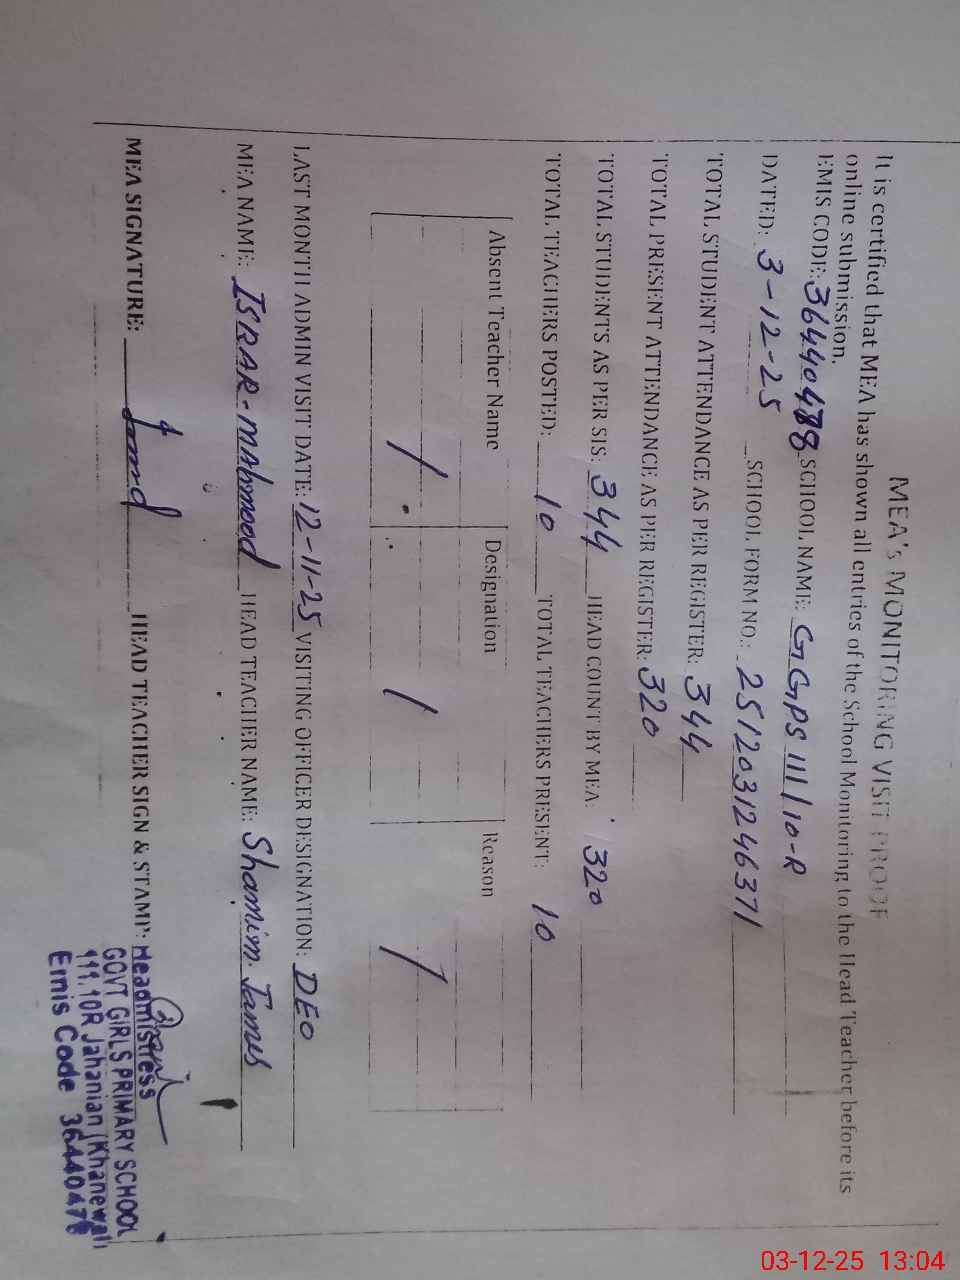 MEA's MONITORING VISIT PROOF
It is certified that MEA has shown all entries of the School Monitoring to the Head Teacher before its
online submission.
EMIS CODE: 36440478 SCHOOL NAME: GGPS 111/10-R
DATED: 3-12-25 SCHOOL FORM NO.: 2512031246371
TOTAL STUDENT ATTENDANCE AS PER REGISTER: 344
TOTAL PRESENT ATTENDANCE AS PER REGISTER: 320
TOTAL STUDENTS AS PER SIS: 344 HEAD COUNT BY MEA: 320
TOTAL TEACHERS POSTED: 10 TOTAL TEACHERS PRESENT: 10
Absent Teacher Name Designation Reason
/ / /
LAST MONTH ADMIN VISIT DATE: 12-11-25 VISITING OFFICER DESIGNATION: DEO
MEA NAME: ISRAR-Mahmood HEAD TEACHER NAME: Shamim James
MEA SIGNATURE: HEAD TEACHER SIGN & STAMP: Headmistress
GOVT GIRLS PRIMARY SCHOOL
111,10R Jahanian (Khanewal)
Emis Code 36440478
03-12-25 13:04